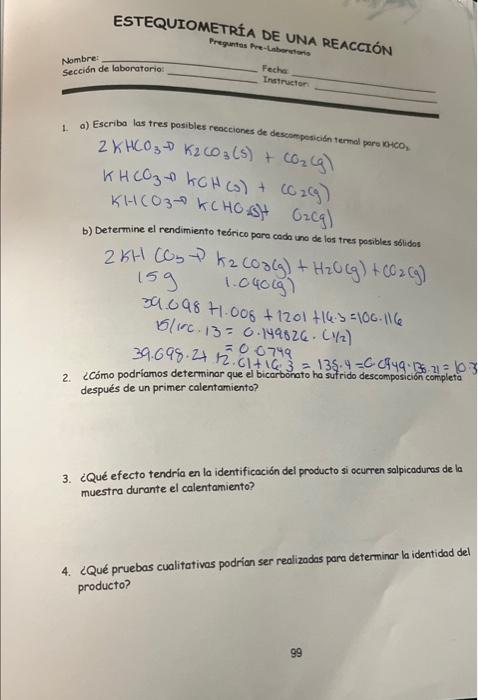 ESTEQUIOMETRÍA DE UNA REACCIÓN
Preguntas Pre-Laboratorio
Nombre:
Fecha:
Sección de laboratorio:
Instructor:
1. a) Escriba las tres posibles reacciones de descomposición termal para KHCO₃
2 KHCO3 → K2CO3(s) + CO2(g)
KHCO3 → KOH(s) + CO2(g)
KHCO3 →
b) Determine el rendimiento teórico para cada uno de los tres posibles sólidos
2 KH CO3 → K2CO3(g) + H2O(g) + CO2(g)
15g 1.040(g)
39.098 + 1.008 + 1201 + 16.3 = 100.116
= 0.149826. (1/2)
= 0.0749
39.098.21
2. ¿Cómo podríamos determinar que el bicarbonato ha sufrido descomposición completa
después de un primer calentamiento?
3. ¿Qué efecto tendría en la identificación del producto si ocurren salpicaduras de la
muestra durante el calentamiento?
4. ¿Qué pruebas cualitativas podrían ser realizadas para determinar la identidad del
producto?
99